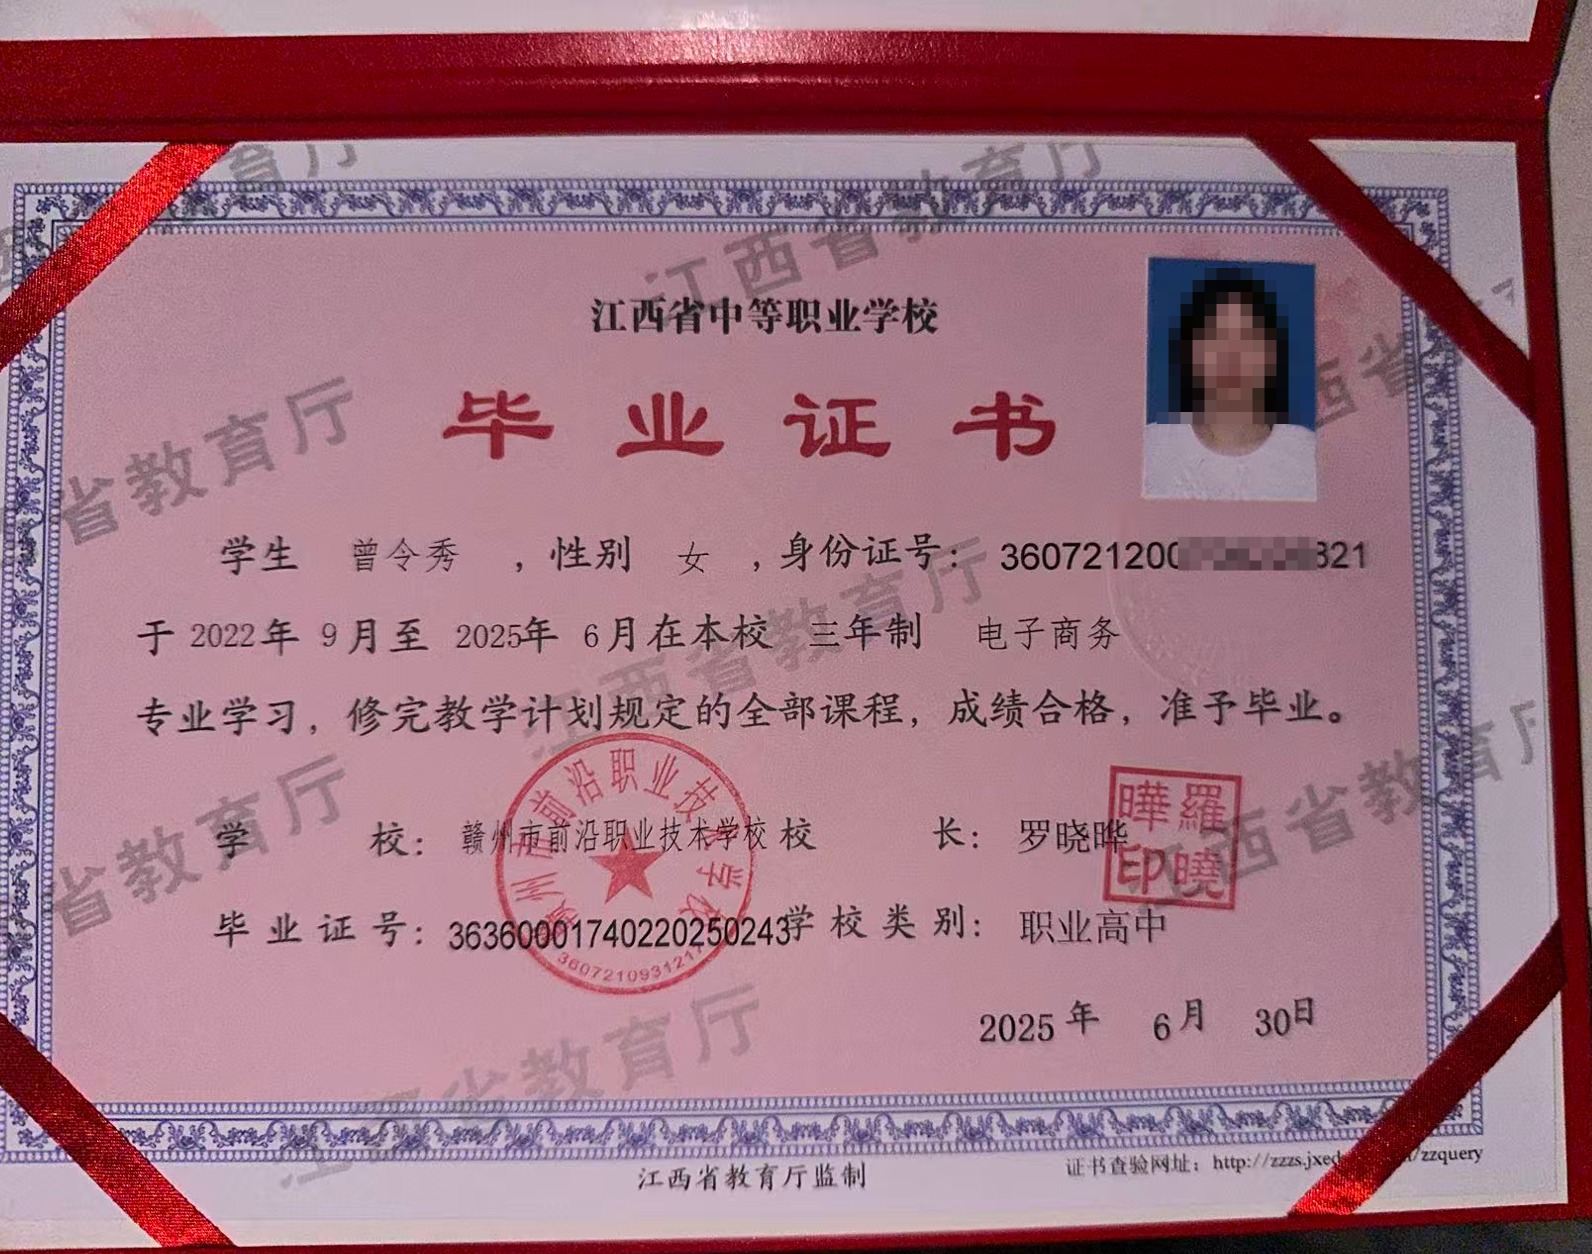 江西省中等职业学校
毕业证书
学生 曾令秀 ，性别 女 ，身份证号： 360721200 821
于 2022年 9月至 2025年 6月在本校 三年制 电子商务
专业学习，修完教学计划规定的全部课程，成绩合格，准予毕业。
学 校： 赣州市前沿职业技术学校 校 长： 罗晓晔
羅曉曄印
毕业证号： 36360001740220250243 学校类别： 职业高中
赣州市前沿职业技术学校
2025 年 6月 30日
江西省教育厅监制
证书查验网址： http://zzzs.jxed /zzquery
江西省教育厅